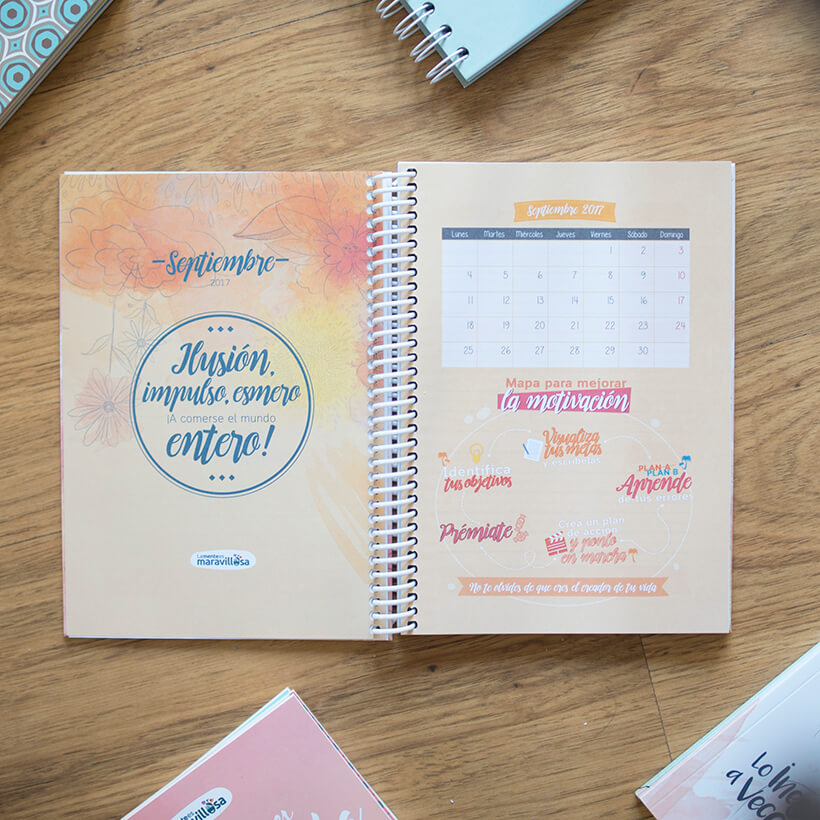 Septiembre
2017
Ilusión,
impulso, esmero
¡A comerse el mundo
entero!
Lamentees
maravillosa
Septiembre 2017
Lunes Martes Miércoles Jueves Viernes Sábado Domingo
1 2 3
4 5 6 7 8 9 10
11 12 13 14 15 16 17
18 19 20 21 22 23 24
25 26 27 28 29 30
Mapa para mejorar
la motivación
Visualiza
tus metas
y escríbelas
Identifica
tus objetivos
PLAN A
PLAN B
Aprende
de tus errores
Prémiate
Crea un plan
de acción
y ponlo
en marcha
No te olvides de que eres el creador de tu vida
Lamentees
maravillosa
Lo
a